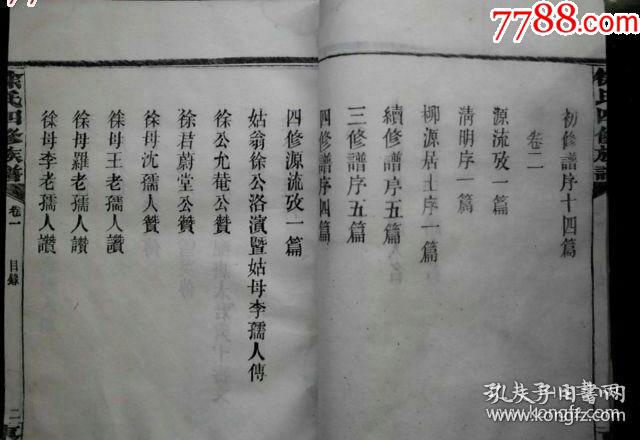 7788.com
徐氏四修族譜
初修譜序十四篇
卷二
源流攷一篇
清明序一篇
柳源居士序一篇
續修譜序五篇
三修譜序五篇
四修譜序四篇
四修源流攷一篇
姑翁徐公洛演暨姑母李孺人傳
徐公允菴公贊
徐君蔚堂公贊
徐母沈孺人贊
徐母王老孺人讚
徐母羅老孺人讚
徐母李老孺人讚
徐氏四修族譜
卷一
目錄
二
孔夫子旧书网
www.kongfz.com